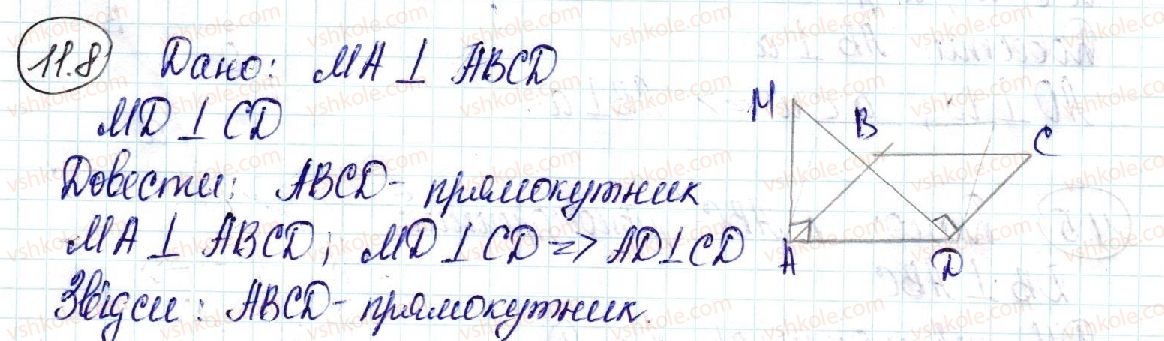 11.8 Дано: MA ⊥ ABCD
MD ⊥ CD
Довести: ABCD - прямокутник
MA ⊥ ABCD; MD ⊥ CD => AD ⊥ CD
Звідси: ABCD - прямокутник.
M
B
C
A
D